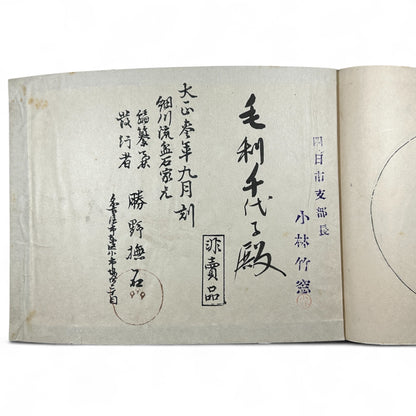 四日市支部長
小林竹窓
毛利千代子殿
非賣品
大正参年九月刻
細川流盆石家元
編纂兼
發行者
勝野撫石